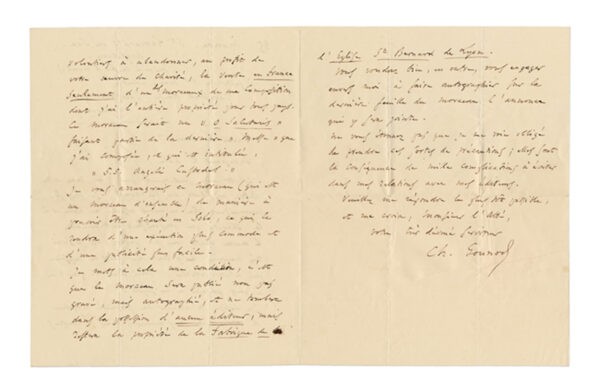 volontiers à abandonner, au profit de
votre œuvre de Charité, la Vente en France
Seulement d'un morceaux de ma Composition
dont j'ai l'entière propriété pour tous pays.
Ce morceau serait un « O Salutaris »
faisant partie de la dernière Messe que
j'ai composée, et qui est intitulée,
« S.S. Angeli Custodes »
Je vous arrangerais ce morceau (qui est
un morceau d'ensemble) de manière à
pouvoir être chanté en Solo, ce qui le
rendra d'une exécution plus commode et
d'une publicité plus facile.
Je mets à cela une condition, c'est
que le morceau sera publié non pas
gravé, mais autographié, et ne tombera
dans la possession d'aucun éditeur, mais
restera la propriété de la Fabrique de
d'Eglise St Bernard de Lyon.
Vous voudrez bien, en outre, vous engager
envers moi à faire autographier sur la
dernière feuille du morceau l'annonce
qui y sera jointe.
Ne vous étonnez pas que je me voie obligé
de prendre ces sortes de précautions; elles sont
la conséquence de mille complications à éviter
dans mes relations avec mes éditeurs.
Veuillez me répondre le plus tôt possible,
et me croire, Monsieur l'Abbé,
votre très dévoué serviteur
Ch. Gounod